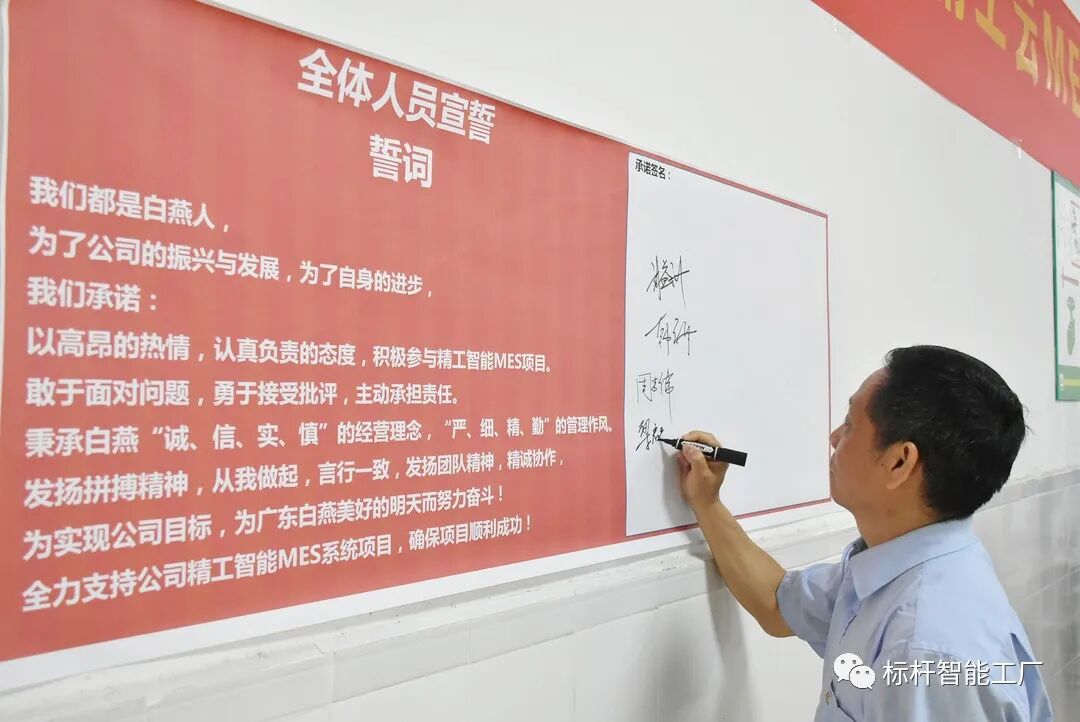 全体人员宣誓
誓词
我们都是白燕人，
为了公司的振兴与发展，为了自身的进步，
我们承诺：
以高昂的热情，认真负责的态度，积极参与精工智能MES项目。
敢于面对问题，勇于接受批评，主动承担责任。
秉承白燕“诚、信、实、慎”的经营理念，“严、细、精、勤”的管理作风。
发扬拼搏精神，从我做起，言行一致，发扬团队精神，精诚协作，
为实现公司目标，为广东白燕美好的明天而努力奋斗！
全力支持公司精工智能MES系统项目，确保项目顺利成功！
承诺签名：
周志伟
工云ME
标杆智能工厂